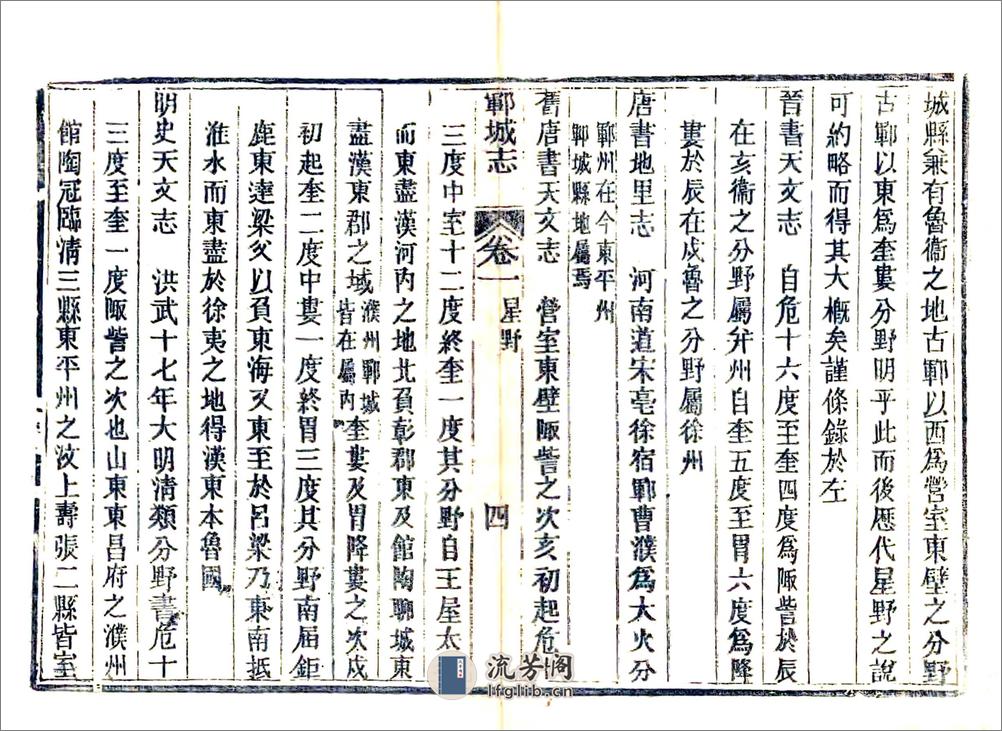 城縣兼有魯衞之地古鄆以西爲營室東壁之分野
古鄆以東爲奎婁分野明乎此而後歷代星野之說
可約略而得其大槪矣謹條錄於左
晉書天文志　自危十六度至奎四度爲陬訾於辰
在亥衞之分野屬并州自奎五度至胃六度爲降
婁於辰在戍魯之分野屬徐州
唐書地里志　河南道宋亳徐宿鄆曹濮爲大火分
鄆州在今東平州
鄆城縣地屬焉
舊唐書天文志　營室東壁陬訾之次亥初起危
鄆城志　卷一　星野　四
三度中室十二度終奎一度其分野自王屋太
而東盡漢河內之地北負彰郡東及館陶聊城東
盡漢東郡之域
濮州鄆城
皆在屬內
奎婁及胃降婁之次戍
初起奎二度中婁一度終胃三度其分野南屆鉅
鹿東達梁父以負東海又東至於呂梁乃東南抵
淮水而東盡於徐夷之地得漢東本魯國
明史天文志　洪武十七年大明清類分野書危十
三度至奎一度陬訾之次也山東東昌府之濮州
館陶冠臨清三縣東平州之汶上壽張二縣皆室
流芳阁
lfglib.cn